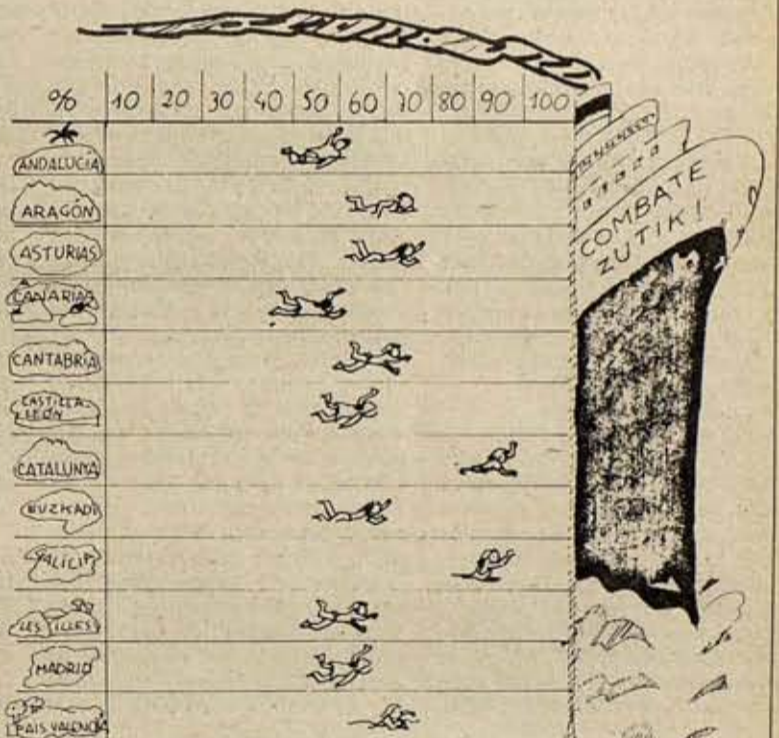 % 10 20 30 40 50 60 70 80 90 100
ANDALUCÍA
ARAGÓN
ASTURIAS
CANARIAS
CANTABRIA
CASTILLA-
LEÓN
CATALUNYA
EUZKADI
GALICIA
LES ILLES
MADRID
PAIS VALENCIÀ
COMBATE
ZUTIK!